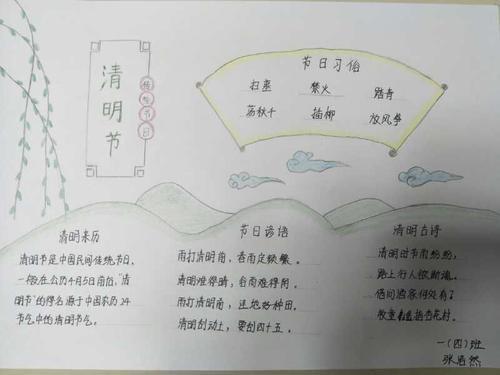 清明节
传统节日
节日习俗
扫墓 禁火 踏青
荡秋千 插柳 放风筝
清明来历
清明节是中国民间传统节日。
一般在公历4月5日前后，"清
明节"的得名源于中国农历24
节气中的清明节气。
节日谚语
雨打清明前，春雨定频繁。
清明难得晴，谷雨难得阴。
雨打清明前，洼地好种田。
清明刮动土，要刮四十五。
清明古诗
清明时节雨纷纷，
路上行人欲断魂。
借问酒家何处有？
牧童遥指杏花村。
一（四）班
张浩然